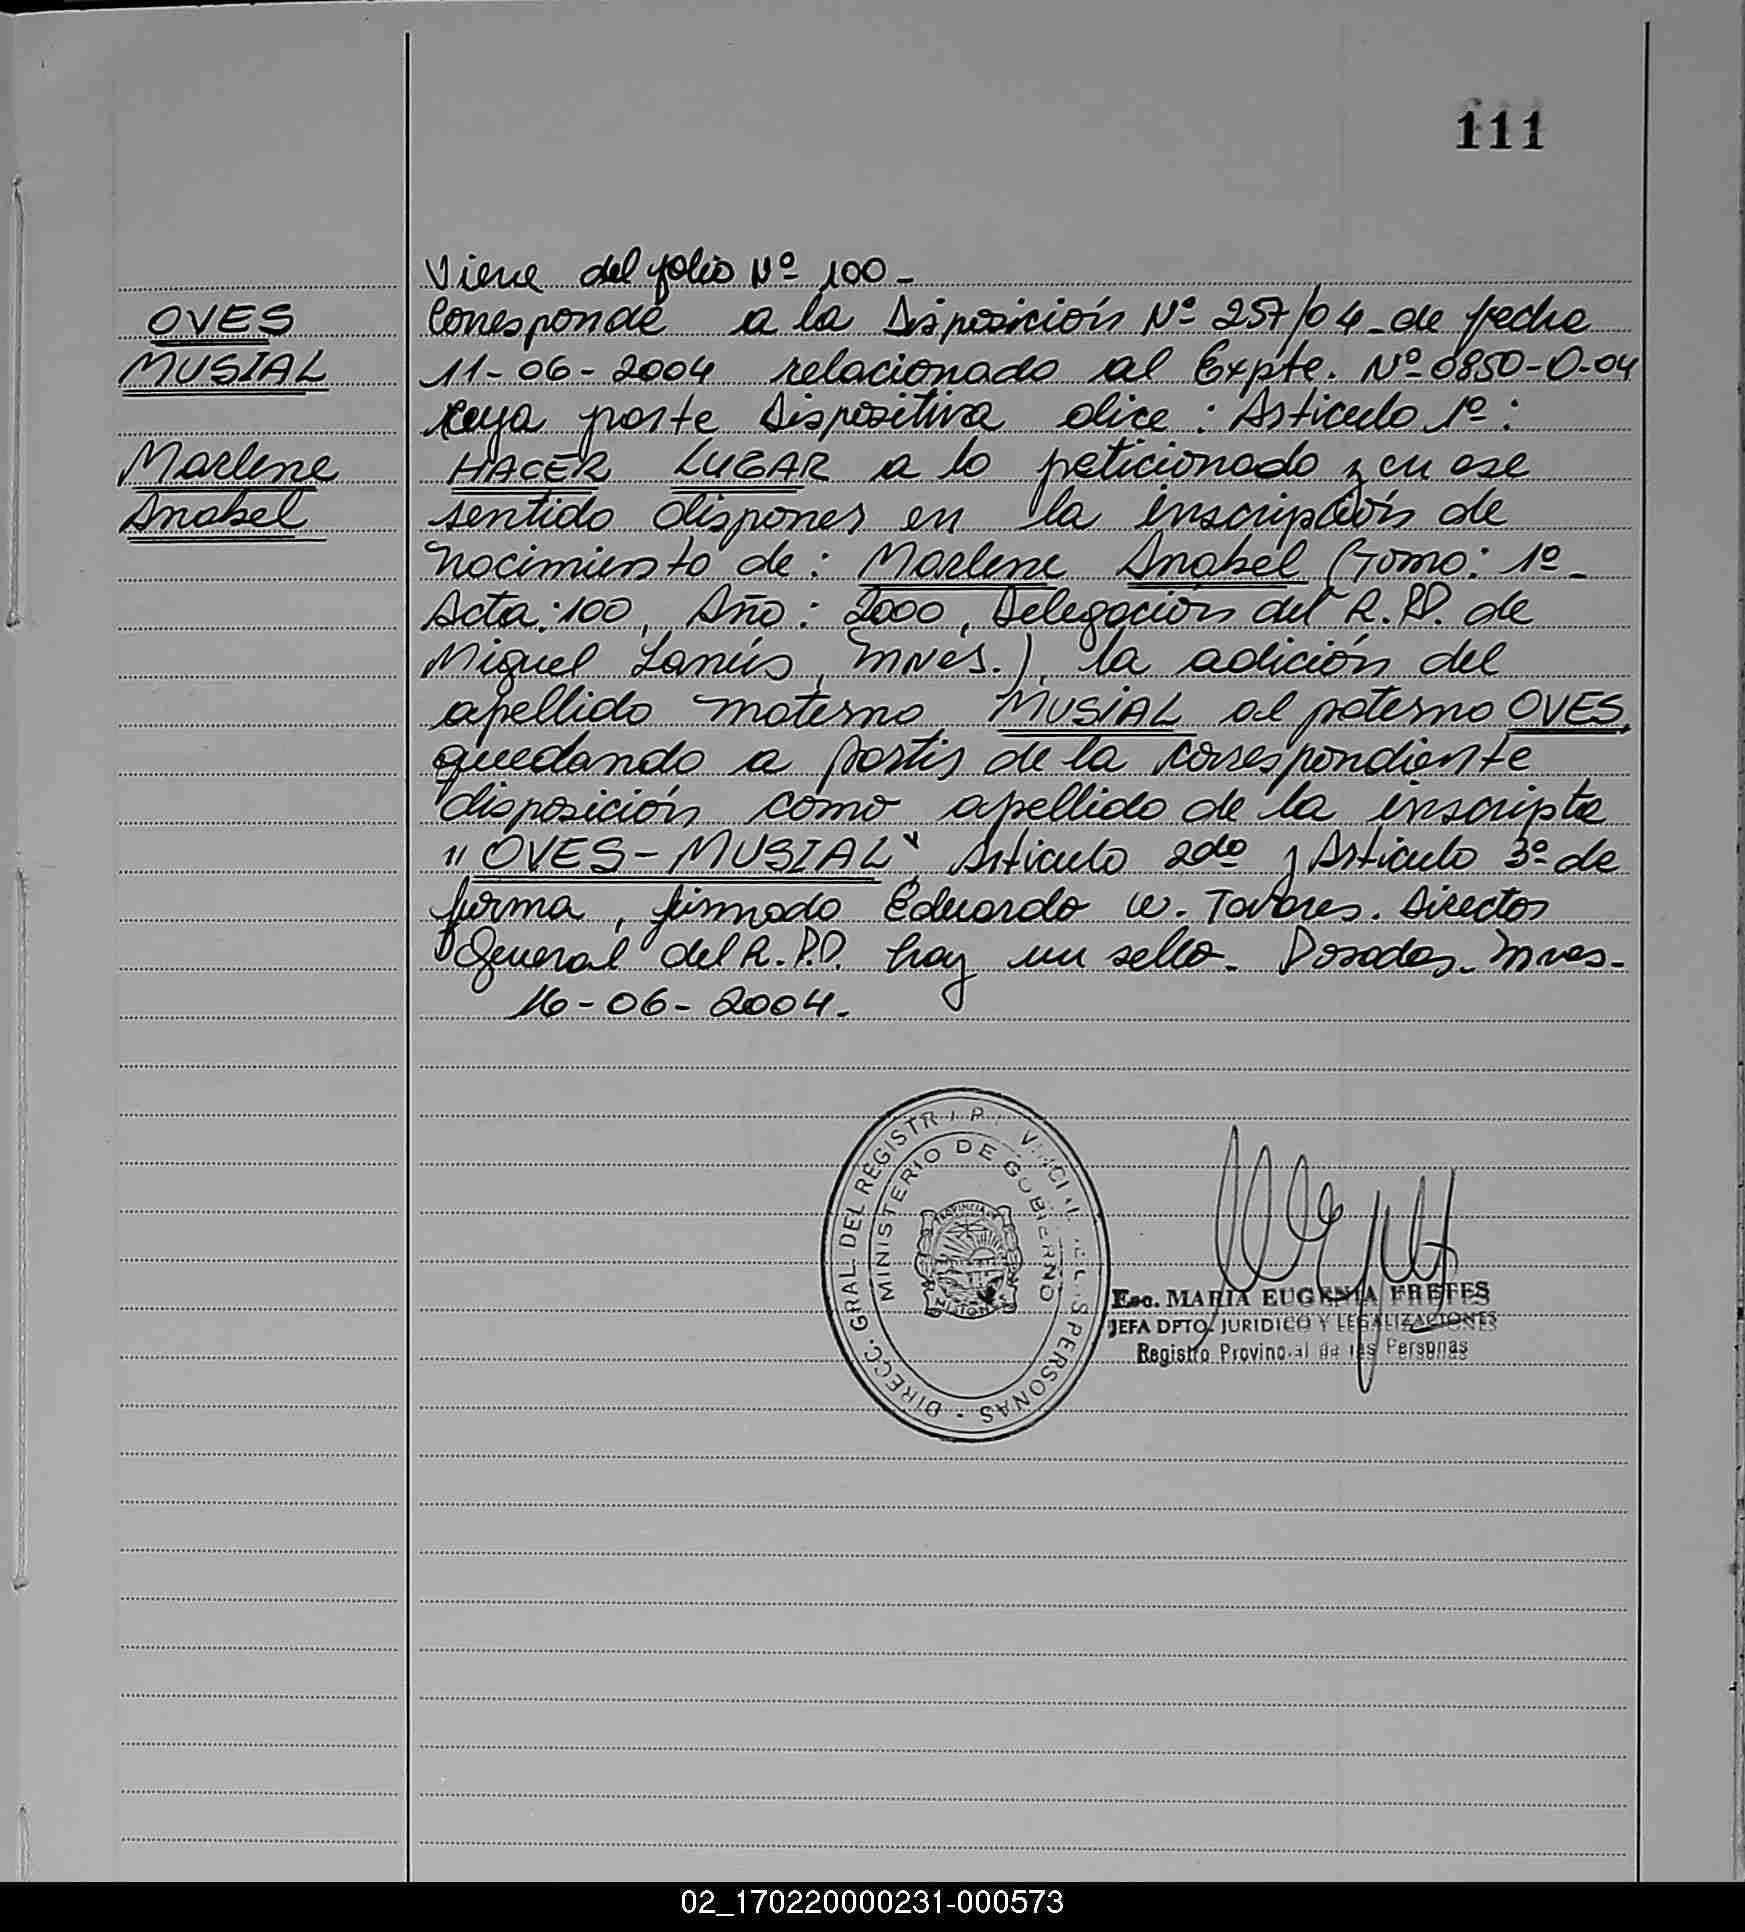 111
Viene del folio Nº 100-
OVES
Corresponde a la Disposición Nº 257/04- de fecha
MUSIAL
11-06-2004 relacionado al Expte. Nº 0850-O-04
cuya parte Dispositiva dice: Artículo 1º:
Marlene
HACER LUGAR a lo peticionado y en ese
Anabel
sentido disponer en la inscripción de
nacimiento de: Marlene Anabel (Tomo: 1º-
Acta: 100, Año: 2000, Delegación del R.P.P. de
Miguel Lanús, Mnes.), la adición del
apellido materno MUSIAL al paterno OVES,
quedando a partir de la correspondiente
disposición como apellido de la inscripta
"OVES-MUSIAL", Artículo 2do y Artículo 3º de
forma, firmado Eduardo W. Tavares. Director
General del R.P.P. hay un sello- Posadas- Mnes-
16-06-2004.
DIRECC. GRAL. DEL REGISTR PERSONAS
MINISTERIO DE GOBIERNO
PROVINCIA
MISIONES
Esc. MARIA EUGENIA FRETES
JEFA DPTO. JURIDICO Y LEGALIZACIONES
Registro Provincial de las Personas
02_170220000231-000573